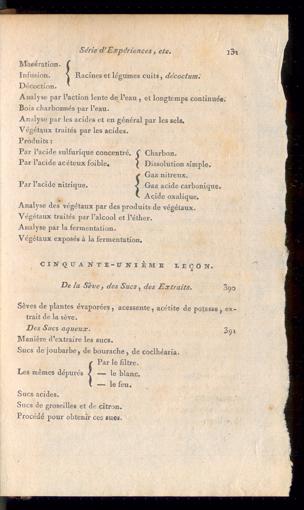 Série d'Expériences, etc. 131
Macération.
Infusion. { Racines et légumes cuits, décoctum.
Décoction.
Analyse par l'action lente de l'eau, et longtemps continuée.
Bois charbonnés par l'eau.
Analyse par les acides et en général par les sels.
Végétaux traités par les acides.
Produits :
Par l'acide sulfurique concentré. { Charbon.
Par l'acide acéteux foible. { Dissolution simple.
Par l'acide nitrique. { Gaz nitreux.
Gaz acide carbonique.
Acide oxalique.
Analyse des végétaux par des produits de végétaux.
Végétaux traités par l'alcool et l'éther.
Analyse par la fermentation.
Végétaux exposés à la fermentation.
CINQUANTE-UNIÈME LEÇON.
De la Sève, des Sucs, des Extraits. 390
Sèves de plantes évaporées, acessente, acétite de potasse, ex-
trait de la sève.
Des Sucs aqueux. 391
Manière d'extraire les sucs.
Sucs de joubarbe, de bourache, de cochléaria.
Les mêmes dépurés { Par le filtre.
— le blanc.
— le feu.
Sucs acides.
Sucs de groseilles et de citron.
Procédé pour obtenir ces sucs.